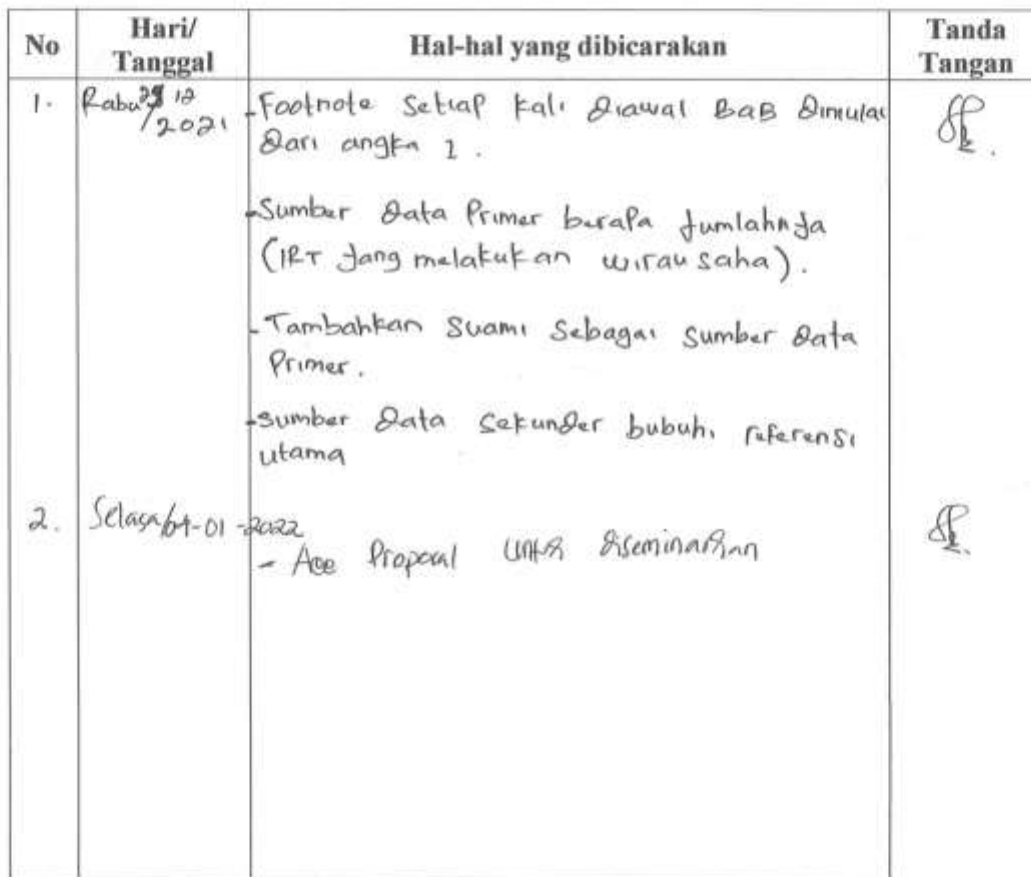 No
Hari/
Tanggal
Hal-hal yang dibicarakan
Tanda
Tangan
1.
Rabu 12
/2021
- Footnote Setiap kali diawal BAB dimulai
dari angka 1.
- Sumber data Primer berapa Jumlahnya
(IRT yang melakukan wirausaha).
- Tambahkan Suami Sebagai Sumber data
Primer.
- Sumber data sekunder bubuhi referensi
utama
2.
Selasa/04-01-2022
- Acc Proposal untuk diseminarkan